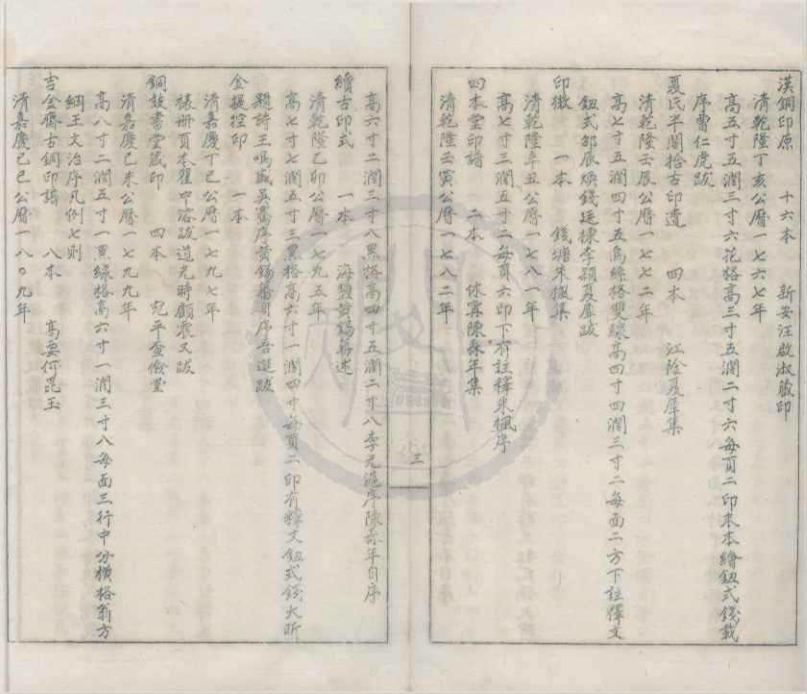 漢銅印原　十六本　新安汪啟淑藏印
清乾隆丁亥公曆一七六七年
高五寸五濶三寸六花格高三寸五濶二寸六每頁二印朱本繪鈕式錢載
序曹仁虎跋
夏氏半閣拾古印遺　四本　江陰夏犀集
清乾隆壬辰公曆一七七二年
高七寸五濶四寸五烏絲格雙綫高四寸四濶三寸二每面二方下註釋文
鈕式邵辰煥錢廷棟李穎夏犀跋
印徵　一本　錢塘朱楓集
清乾隆辛丑公曆一七八一年
高七寸三濶五寸二每頁六印下有註釋朱楓序
四本堂印譜　二本　休寧陳森年集
清乾隆壬寅公曆一七八二年
高六寸二濶三寸八黑格高四寸五濶二寸八李元滬序陳森年自序
續古印式　一本　海鹽黃錫蕃述
清乾隆乙卯公曆一七九五年
高七寸七濶五寸三黑格高六寸一濶四寸每頁二印有釋文鈕式錢大昕
題詩王鳴盛吳騫序黃錫蕃自序吾進跋
金摳控印　一本
清嘉慶丁巳公曆一七九七年
裱册頁本瞿中溶跋道光時顧震又跋
銅鼓書堂藏印　四本　宛平查儉堂
清嘉慶己未公曆一七九九年
高八寸二濶五寸一黑綠格高六寸一濶三寸八每面三行中分橫格翁方
綱王文治序凡例七則
吉金齋古銅印譜　八本　高要何昆玉
清嘉慶己巳公曆一八〇九年
三